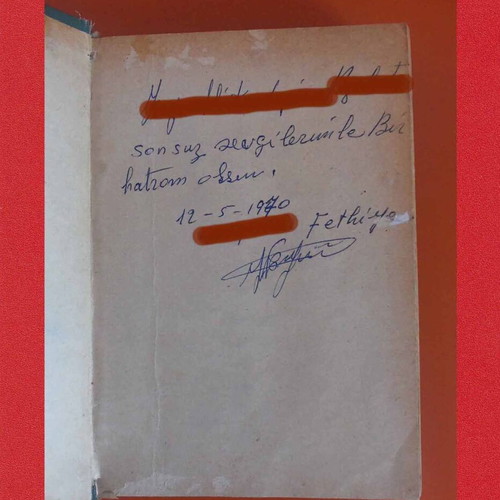 sonsuz sevgilerimle Bir
hatıram olsun.
12-5-1970
Fethiye